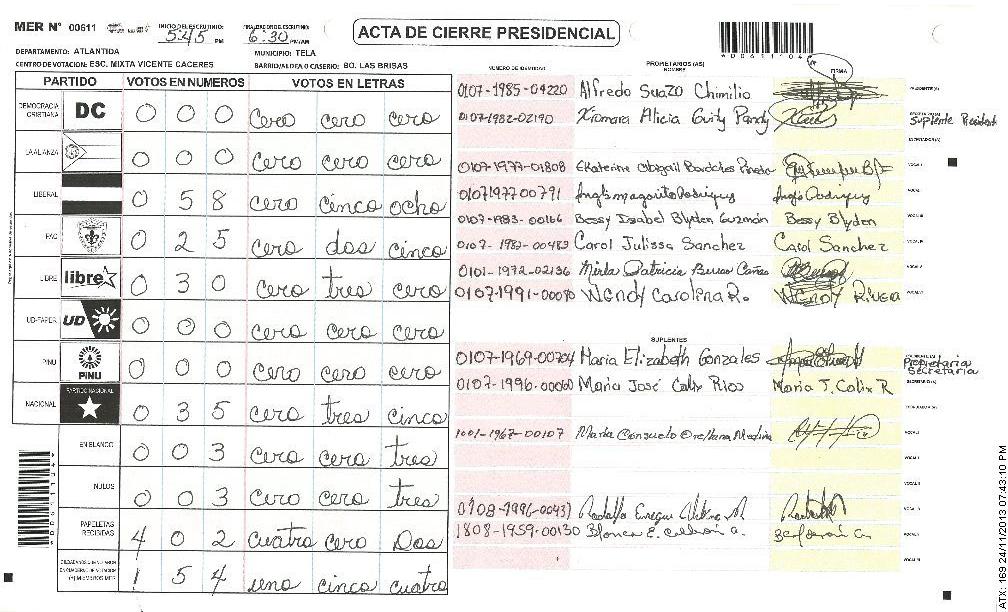 MER Nº 00611
INICIO DEL ESCRUTINIO: 5:45 PM
FINALIZACION DEL ESCRUTINIO: 6:30 PM/AM
ACTA DE CIERRE PRESIDENCIAL
DEPARTAMENTO: ATLANTIDA
MUNICIPIO: TELA
CENTRO DE VOTACION: ESC. MIXTA VICENTE CACERES
BARRIO/ALDEA O CASERIO: BO. LAS BRISAS
PARTIDO VOTOS EN NUMEROS VOTOS EN LETRAS
DEMOCRACIA CRISTIANA DC 0 0 0 cero cero cero
LA ALIANZA 0 0 0 cero cero cero
LIBERAL 0 5 8 cero cinco ocho
PAC 0 2 5 cero dos cinco
LIBRE libre 0 3 0 cero tres cero
UD-FAPER UD 0 0 0 cero cero cero
PINU PINU 0 0 0 cero cero cero
NACIONAL PARTIDO NACIONAL 0 3 5 cero tres cinco
EN BLANCO 0 0 3 cero cero tres
NULOS 0 0 3 cero cero tres
PAPELETAS RECIBIDAS 4 0 2 cuatro cero Dos
1 5 4 uno cinco cuatro
NUMERO DE IDENTIDAD PROPIETARIOS (AS) NOMBRE FIRMA
0107-1985-04220 Alfredo Suazo Chimilio
0107-1982-02190 Xiomara Alicia Guity Suplente President
0107-1977-01808
0107197700791
0107-1983-00166 Bessy Isabel Blyden Guzmán Bessy Blyden
0107-1982-00483 Carol Julissa Sanchez Carol Sanchez
0101-1972-02136 Mirla Patricia
0107-1991-00080 Wendy Carolina R. Wendy Rivera
SUPLENTES
0107-1969-00704 Maria Elizabeth Gonzales Propietaria Secretaria
0107-1996-00060 Maria José Calix Rios Maria J. Calix R
1001-1967-00107 Marta Consuelo Orellana Medina
0708-1996-00437 Rodolfo
1808-1959-00130 Blanca E.
ATX: 169 24/11/2013 07:43:10 PM